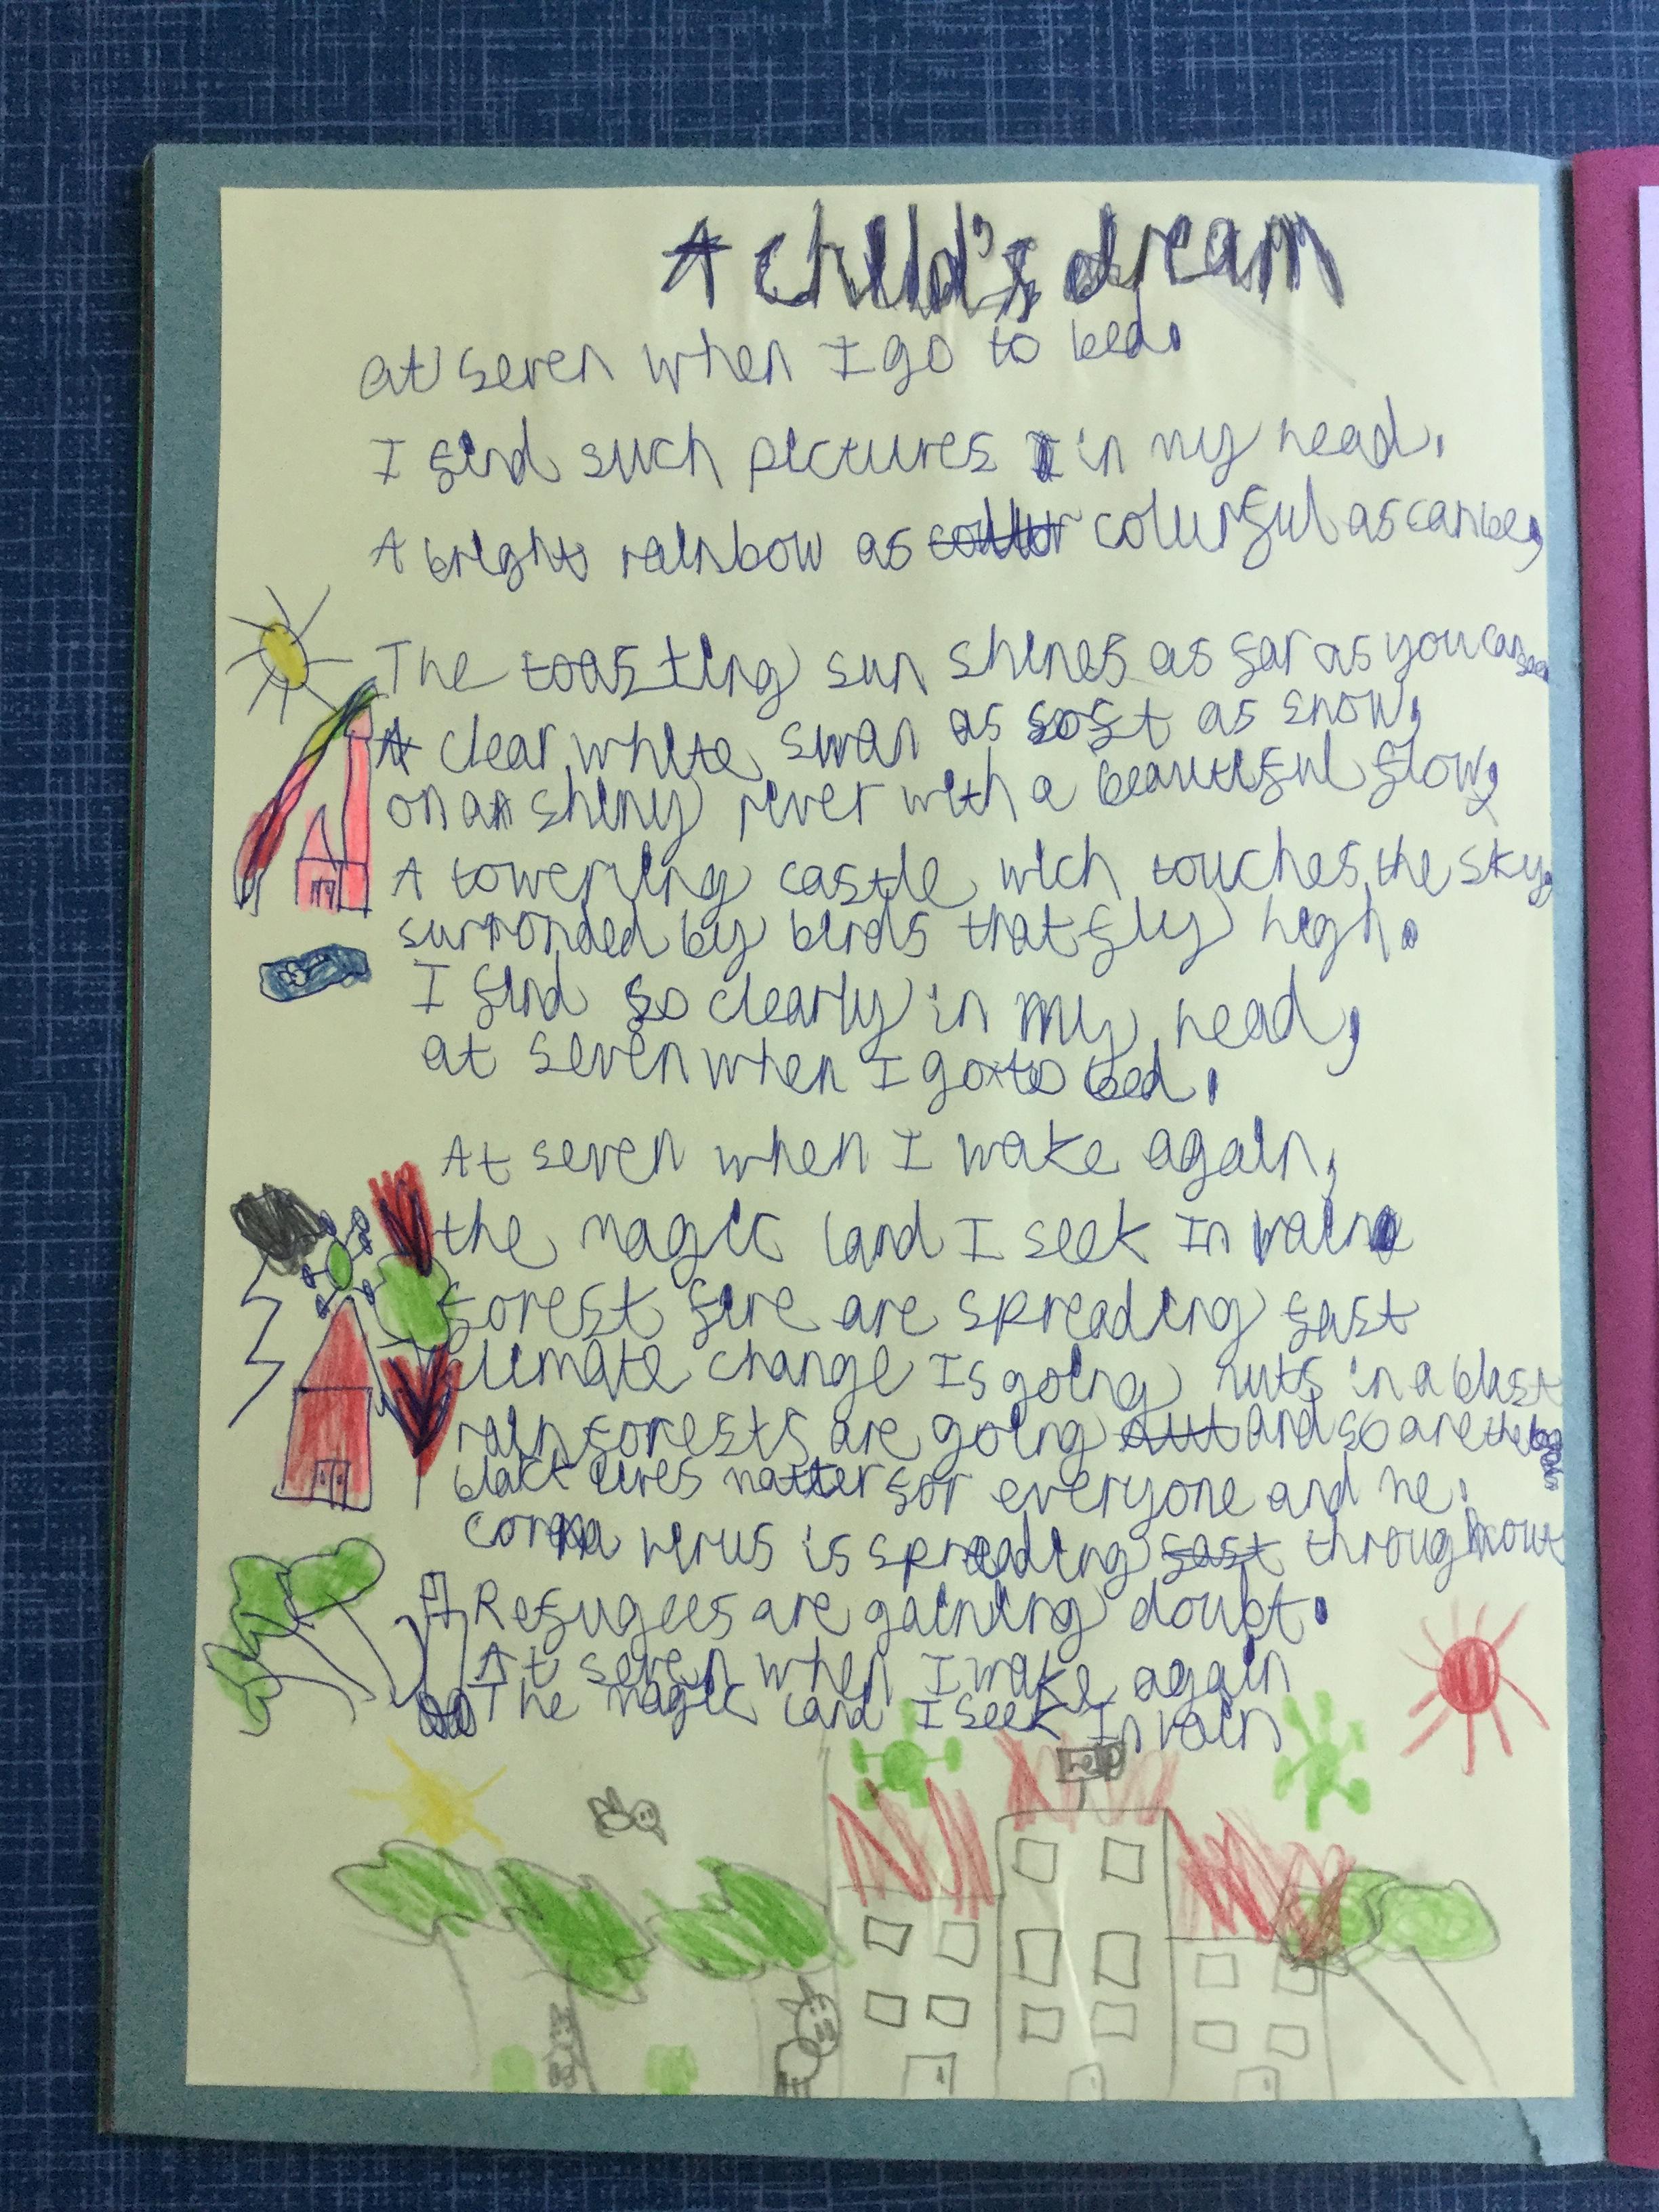 A child's dream
at seven when I go to bed.
I find such pictures in my head.
A bright rainbow as colurful as can be,
The toasting sun shines as far as you can see
A clear white swan as soft as snow,
on a shiny river with a beautiful flow,
A towering castle wich touches the sky,
surronded by birds that fly high.
I find so clearly in my head,
at seven when I go to bed.
At seven when I wake again,
the magic land I seek In vain
forest fire are spreading fast
climate change Is going nuts in a blast
rain forests are going and so are the
black lives matter for everyone and me.
corona virus is spreading throughout
Refugees are gaining doubt.
At seven when I wake again
The magic land I seek In vain
help